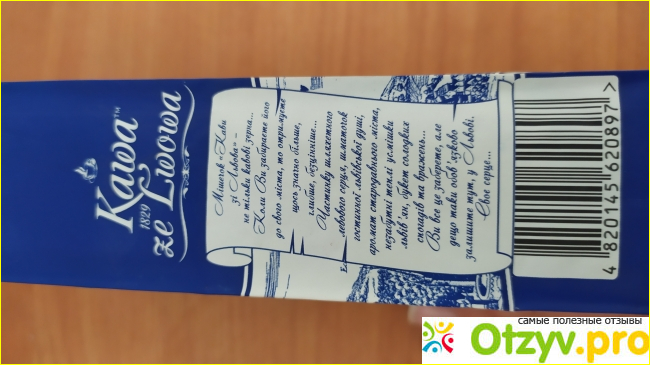 Kawa™
1829
ze Lwowa
Мішечок «Кави
зі Львова» –
не тільки кавові зерна...
Коли Ви забираєте його
до свого міста, то отримуєте
щось значно більше,
глибше, безцінніше...
Частинку шляхетного
левового серця, шматочок
гостинної львівської душі,
аромат стародавнього міста,
незабутні теплі усмішки
львів'ян, букет солодких
спогадів та вражень...
Ви все це заберете, але
дещо таки обов'язково
залишите тут, у Львові.
Своє серце...
4 820145 620897 >
самые полезные отзывы
Otzyv.pro